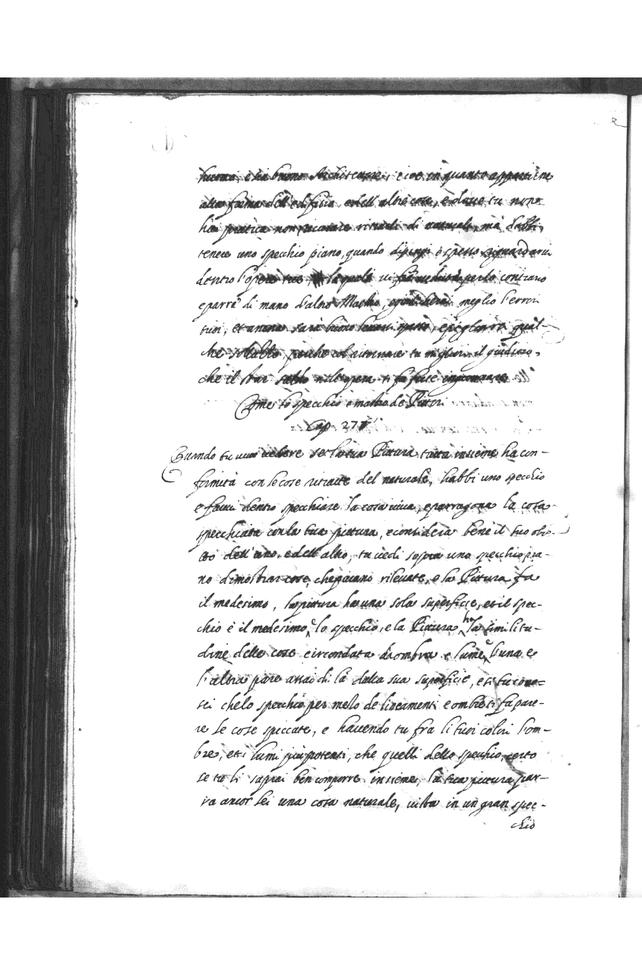 buona, e ha buono Architettore, cioè in quanto appartiene
alla forma dell'edifitia, et dell'altre cose, e dove tu non
hai pratica non recusare ritrarli di naturale, ma debbi
tenere uno specchio piano, quando dipingi e spesso riguardarvi
dentro l'opera tua la quale vi fia veduta per lo contrario
e parrà di mano d'altro Maestro,
tuoi, et ancora sarà buono levarsi spesso, e pigliarsi qual-
che sollazzo, perche col ritornare tu migliori il giuditio,
che il star saldo nell'opera ti fa forte ingannare
Come lo specchio è mastro de Pittori
Cap. 275
Quando tu vuoi vedere se la tua Pittura tutta insieme ha con-
formità con le cose ritratte del naturale, habbi uno specchio
e favvi dentro specchiare la cosa viva, e parragona la cosa
specchiata con la tua pittura, e considera bene il tuo obie-
tto dell'uno, e dell'altro, tu vedi sopra uno specchio pia-
no dimostrar cose, che paiano rilevate, e la Pittura fa
il medesimo, la pittura ha una sola superficie, et il spec-
chio è il medesimo lo specchio, e la Pittura ha la similitu-
dine delle cose circondata d'ombra e lume, l'una e
l'altra pare assai di là dalla sua superficie, e se tu cono-
sci che lo specchio per mezzo de lineamenti e ombre ti fa pare-
re le cose spiccate, e havendo tu fra li tuoi colori l'om-
bre, et i lumi piu potenti, che quelli dello specchio, certo
se tu li saprai ben comporre insieme, la tua pittura par-
rà ancor lei una cosa naturale, vista in un gran spec-
chio